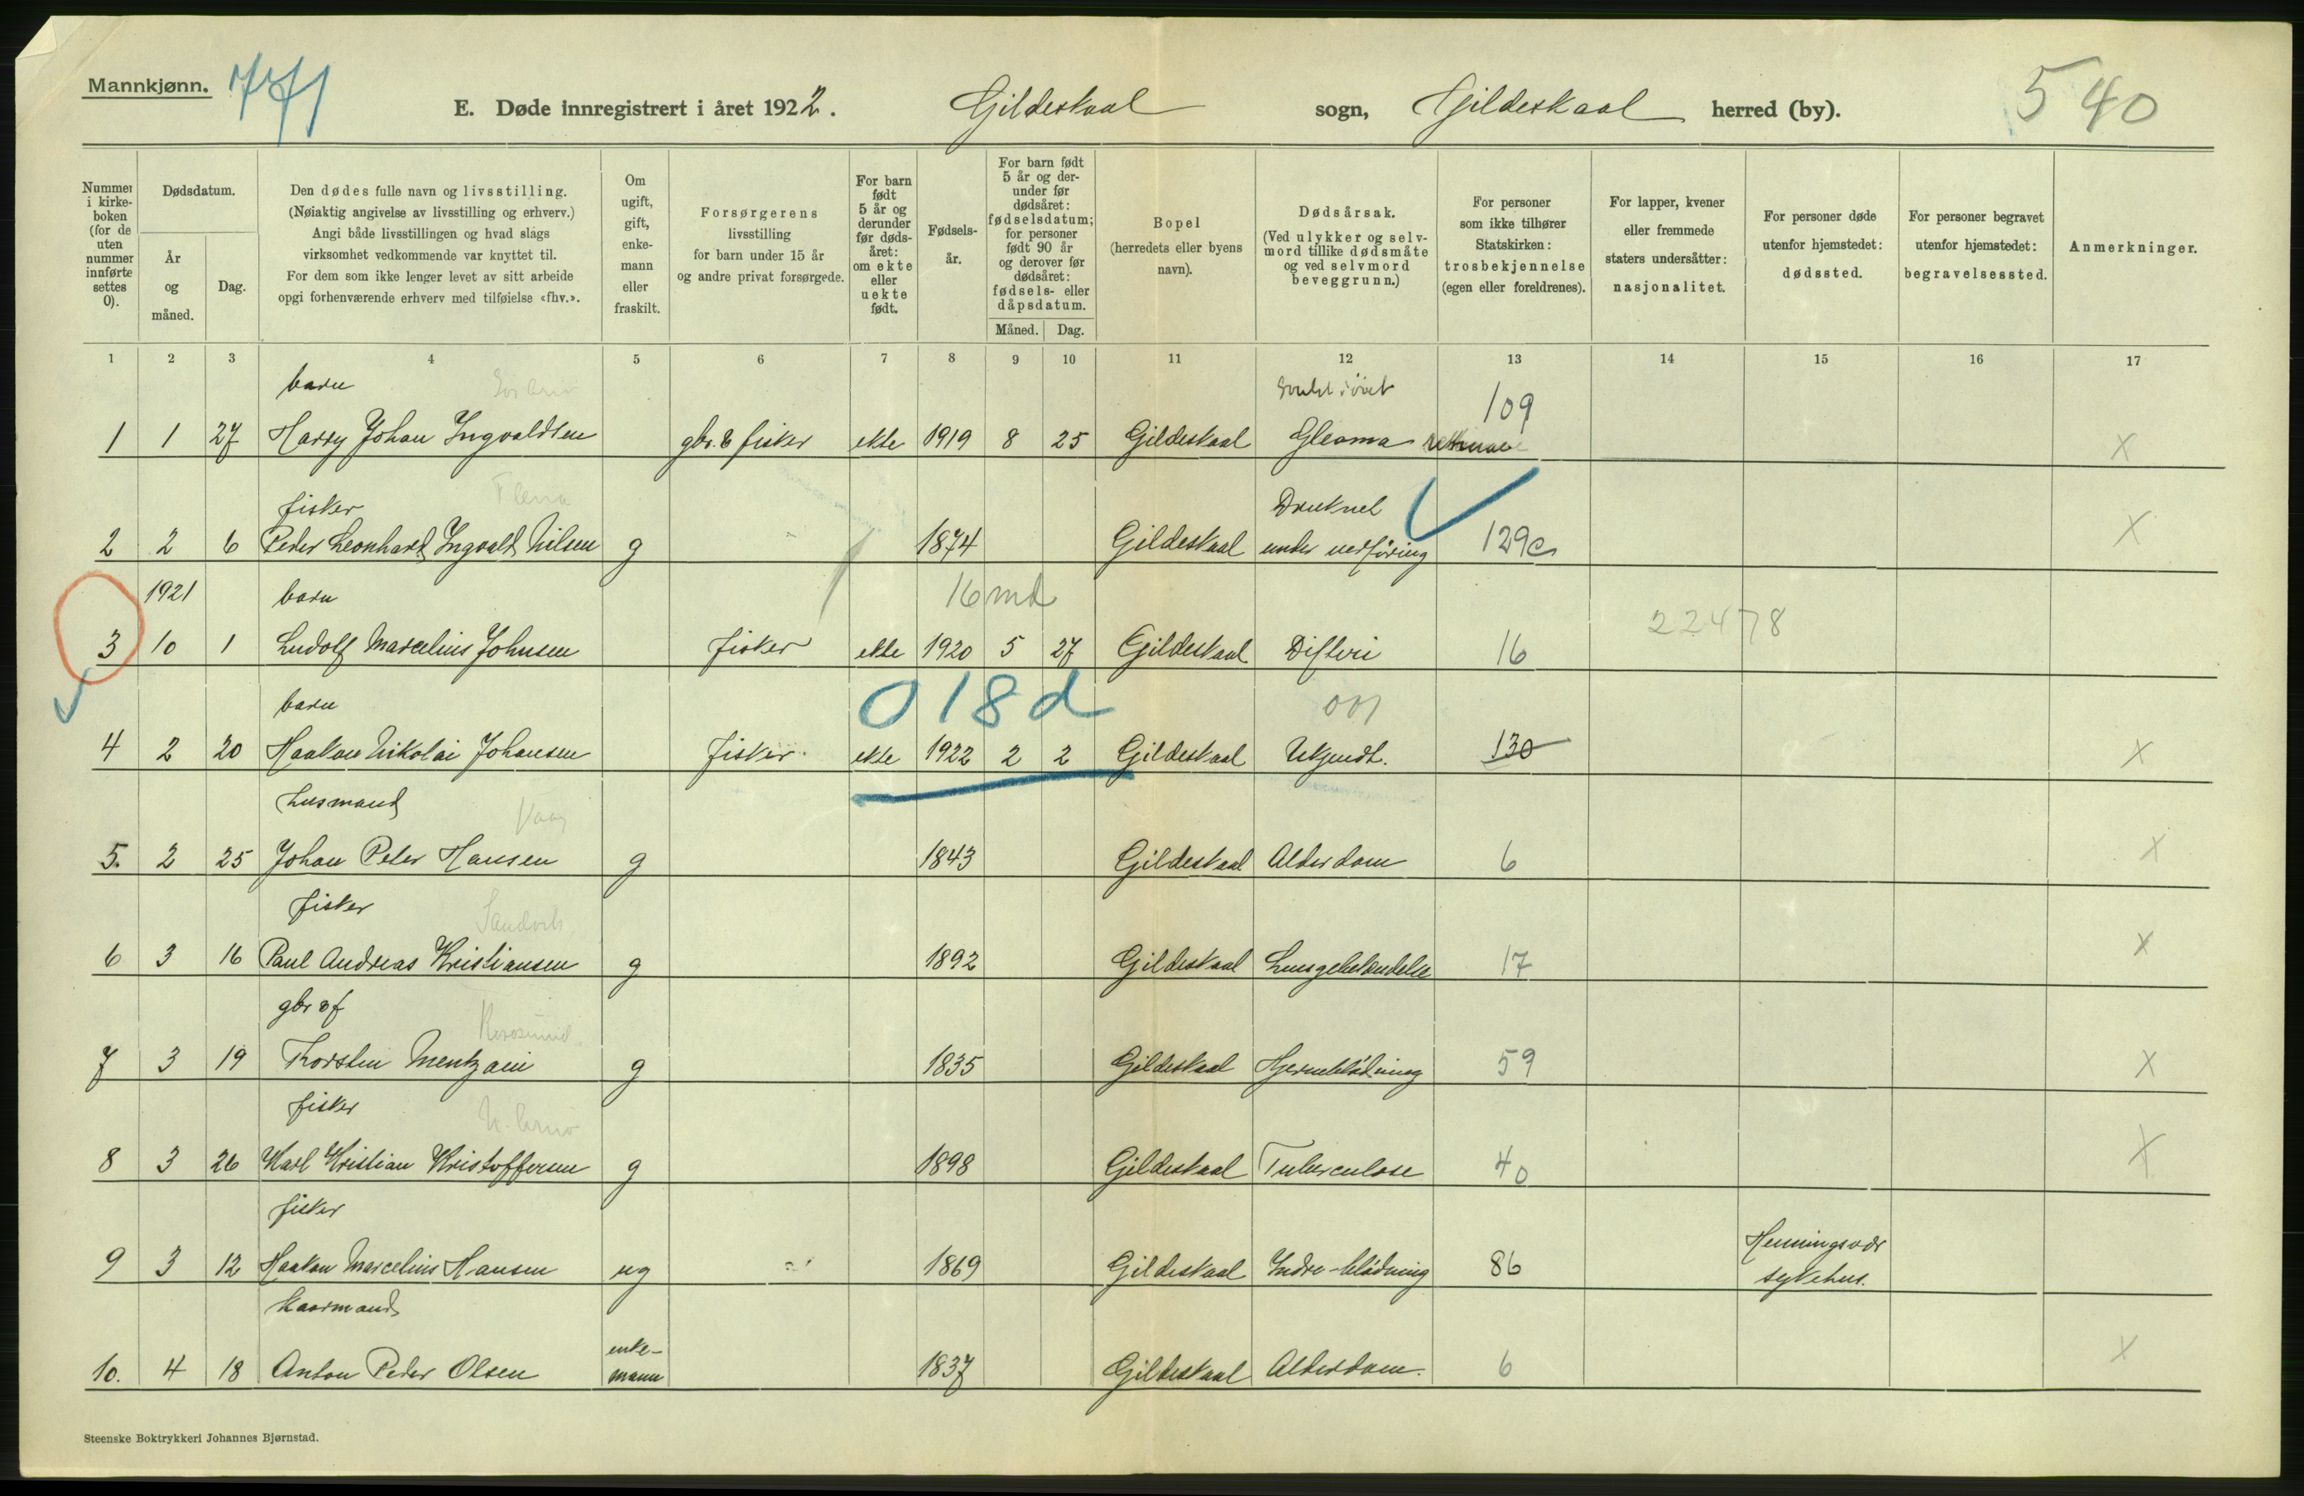 Mannkjønn.
771
E. Døde innregistrert i året 1922. Gildeskaal sogn, Gildeskaal herred (by).
540
Nummer i kirkeboken (for de uten nummer innførte settes 0).
Dødsdatum.
År og måned.
Dag.
Den dødes fulle navn og livsstilling.
(Nøiaktig angivelse av livsstilling og erhverv.)
Angi både livsstillingen og hvad slags
virksomhet vedkommende var knyttet til.
For dem som ikke lenger levet av sitt arbeide
opgi forhenværende erhverv med tilføielse «fhv.».
Om ugift, gift, enkemann eller fraskilt.
Forsørgerens
livsstilling
for barn under 15 år
og andre privat forsørgede.
For barn født 5 år og derunder før dødsåret: om ekte eller uekte født.
Fødselsår.
For barn født 5 år og derunder før dødsåret: fødselsdatum; for personer født 90 år og derover før dødsåret: fødsels- eller dåpsdatum.
Måned. Dag.
Bopel
(herredets eller byens
navn).
Dødsårsak.
(Ved ulykker og selvmord tillike dødsmåte og ved selvmord beveggrunn.)
For personer
som ikke tilhører
Statskirken:
trosbekjennelse
(egen eller foreldrenes).
For lapper, kvener
eller fremmede
staters undersåtter:
nasjonalitet.
For personer døde
utenfor hjemstedet:
dødssted.
For personer begravet
utenfor hjemstedet:
begravelsessted.
Anmerkninger.
1 2 3 4 5 6 7 8 9 10 11 12 13 14 15 16 17
barn
109
1 1 27 Harry Johan Ingvaldsen gbr. & fisker ekte 1919 8 25 Gildeskaal Glioma X
fisker Druknet
2 2 6 Peder Leonhard Ingvald Nilsen g 1874 Gildeskaal under nedføring 129c X
1921 barn 16 md 22478
3 10 1 Ludolf Marcelius Johnsen fisker ekte 1920 5 27 Gildeskaal Difteri 16
barn 018d 001
4 2 20 Haakon Nikolai Johansen fisker ekte 1922 2 2 Gildeskaal Ukjendt. 130 X
Husmand Vaag
5. 2 25 Johan Peter Hansen g 1843 Gildeskaal Alderdom 6 X
fisker
6 3 16 Paul Andreas Kristiansen g 1892 Gildeskaal Lungebetændelse 17 X
gbr & f
7 3 19 Thorsten Mentzoni g 1835 Gildeskaal Hjerneblødning 59 X
fisker
8 3 26 Karl Kristian Kristoffersen g 1898 Gildeskaal Tuberculose 40 X
fisker Henningsvær
9 3 12 Haakon Marcelius Hansen ug 1869 Gildeskaal Indre-blødning 86 sykehus.
Kaarmand enke-
10. 4 18 Anton Peder Olsen mann 1837 Gildeskaal Alderdom. 6 X
Steenske Boktrykkeri Johannes Bjørnstad.